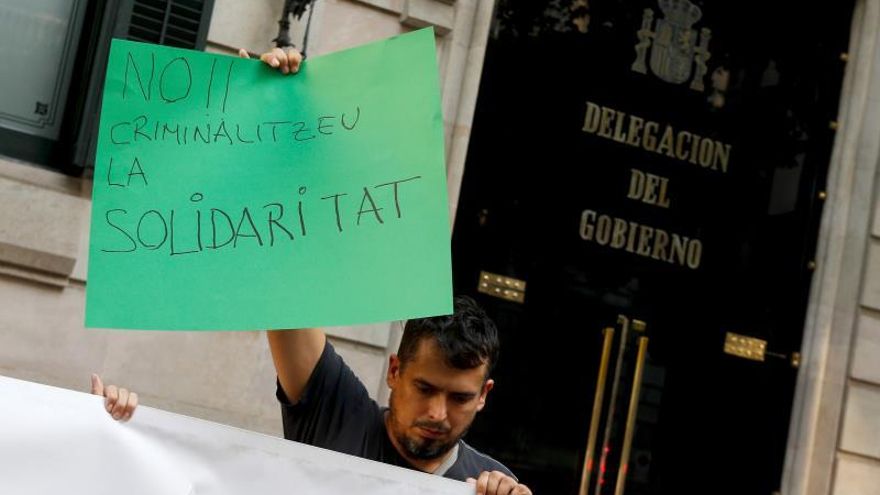 NO!!
CRIMINALITZEU
LA
SOLIDARITAT
DELEGACION
DEL
GOBIERNO